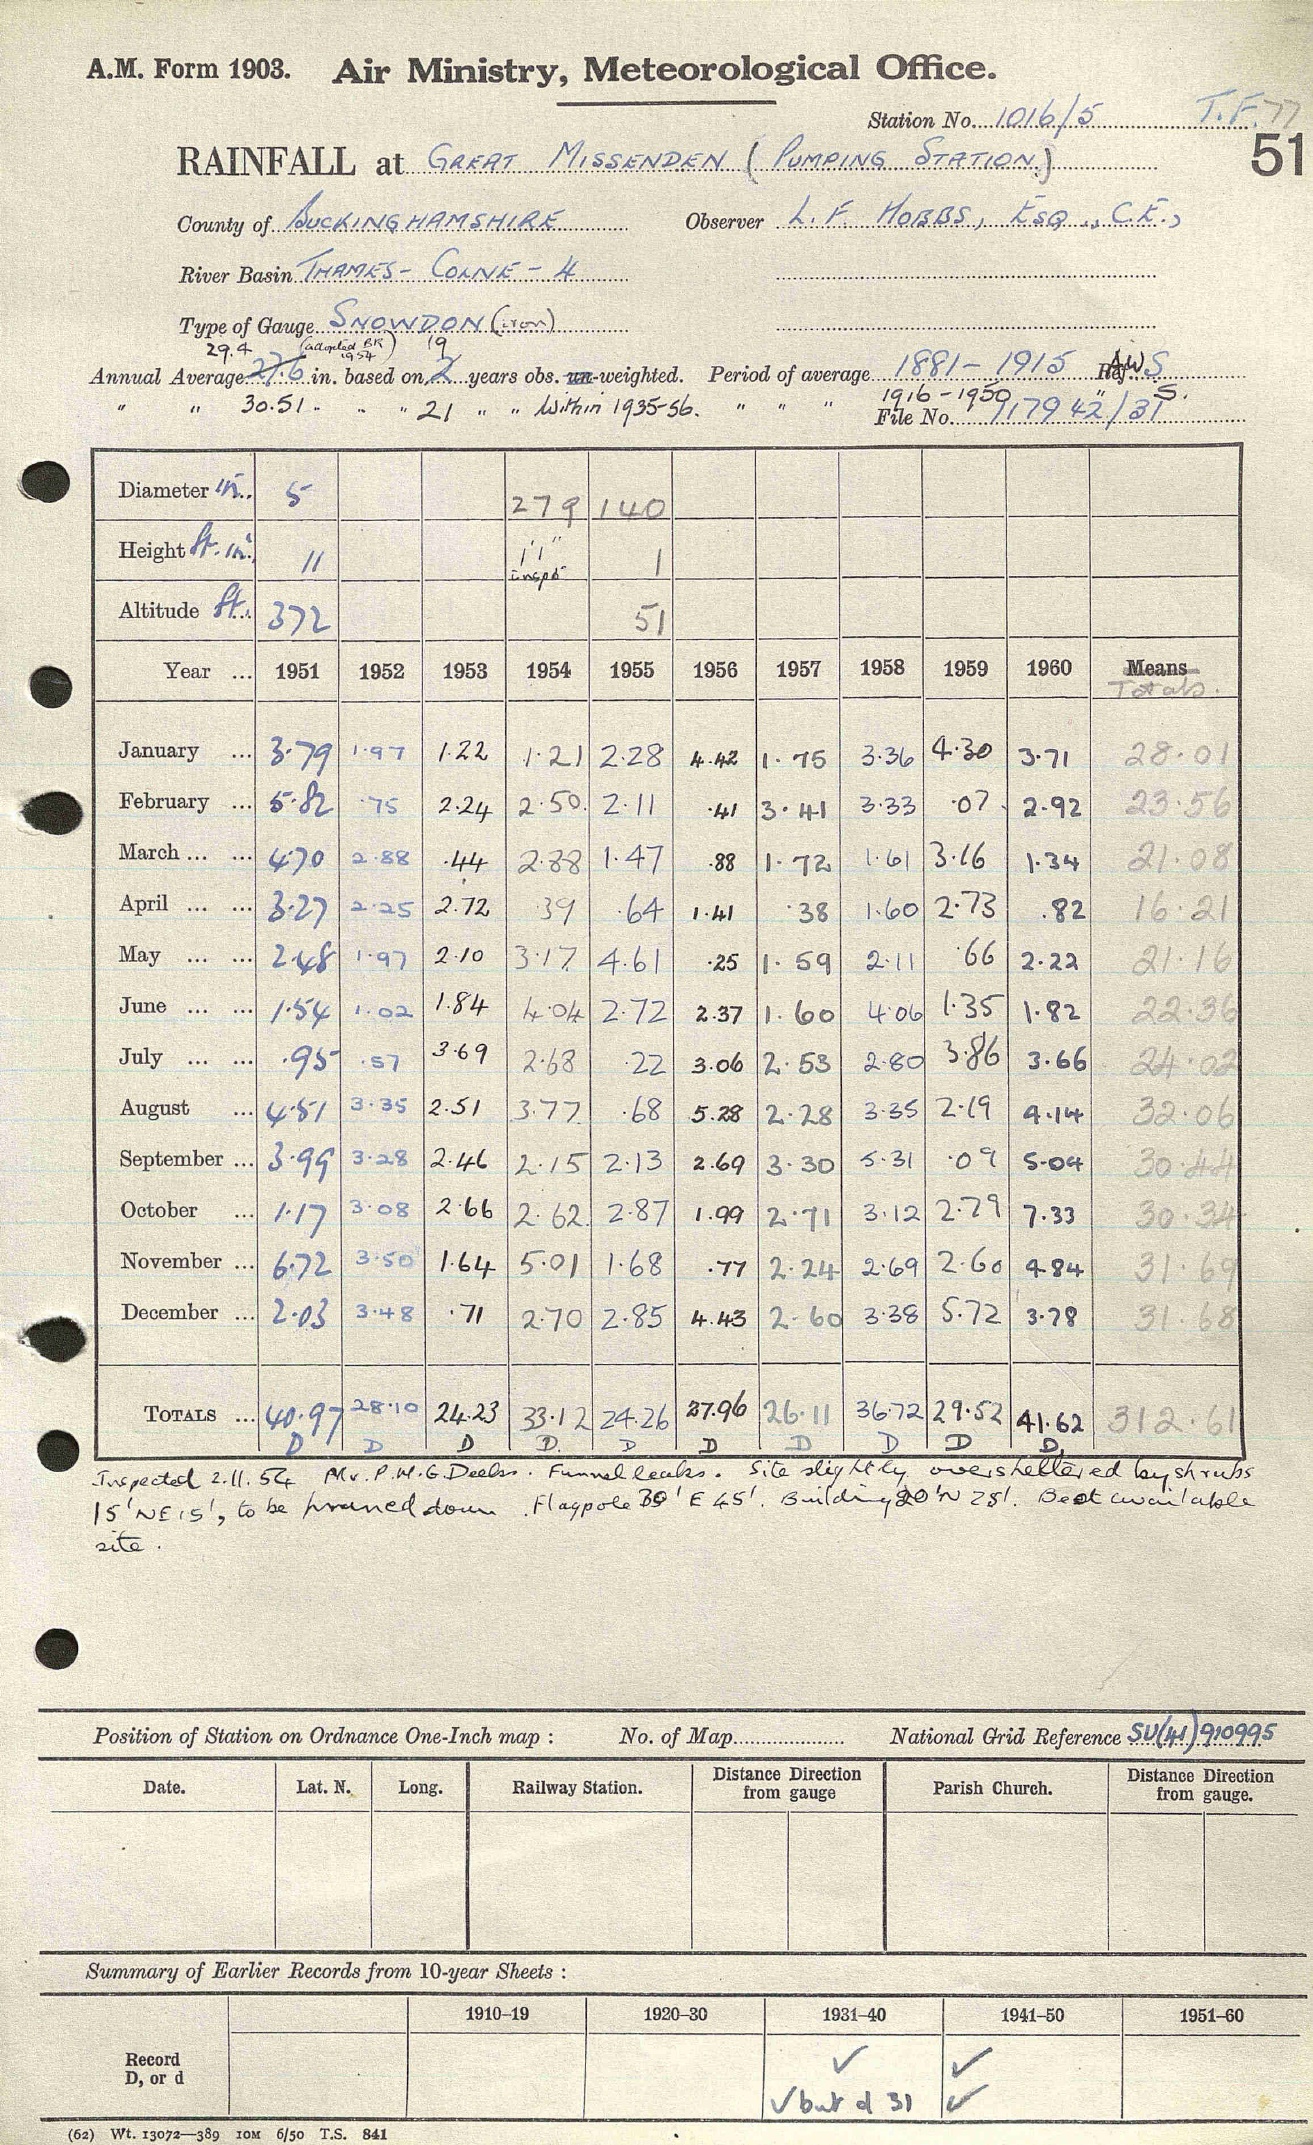 A.M. Form 1903. Air Ministry, Meteorological Office.
Station No. 1016/5 T.F. 77
51
RAINFALL at GREAT MISSENDEN (PUMPING STATION.)
County of BUCKINGHAMSHIRE Observer L. F. HOBBS, ESQ., C.E.,
River Basin THAMES - COLNE - 4
Type of Gauge SNOWDON (iron)
29.4 (adopted BR 1954) 19
Annual Average 27.6 in. based on 2 years obs. un-weighted. Period of average 1881 - 1915 Ref. S
" " 30.51 " " " 21 " " Within 1935-56. " " " 1916 - 1950 " S.
File No. 117942/31
Diameter in. 5 279 140
Height ft. in. 11 1'1" inspn 1
Altitude ft. 372 51
Year ... 1951 1952 1953 1954 1955 1956 1957 1958 1959 1960 Means Totals.
January ... 3.79 1.97 1.22 1.21 2.28 4.42 1.75 3.36 4.30 3.71 28.01
February ... 5.82 .75 2.24 2.50 2.11 .41 3.41 3.33 .07 2.92 23.56
March ... ... 4.70 2.88 .44 2.88 1.47 .88 1.72 1.61 3.16 1.34 21.08
April ... ... 3.27 2.25 2.72 .39 .64 1.41 .38 1.60 2.73 .82 16.21
May ... ... 2.48 1.97 2.10 3.17 4.61 .25 1.59 2.11 .66 2.22 21.16
June ... ... 1.54 1.02 1.84 4.04 2.72 2.37 1.60 4.06 1.35 1.82 22.36
July ... ... .95 .57 3.69 2.68 .22 3.06 2.53 2.80 3.86 3.66 24.02
August ... 4.51 3.35 2.51 3.77 .68 5.28 2.28 3.35 2.19 4.14 32.06
September ... 3.99 3.28 2.46 2.15 2.13 2.69 3.30 5.31 .09 5.04 30.44
October ... 1.17 3.08 2.66 2.62 2.87 1.99 2.71 3.12 2.79 7.33 30.34
November ... 6.72 3.50 1.64 5.01 1.68 .77 2.24 2.69 2.60 4.84 31.69
December ... 2.03 3.48 .71 2.70 2.85 4.43 2.60 3.38 5.72 3.78 31.68
TOTALS ... 40.97 28.10 24.23 33.12 24.26 27.96 26.11 36.72 29.52 41.62 312.61
D D D D. D D D D D D.
Inspected 2.11.54 Mr. P.M.G. Deeks. Funnel leaks. Site slightly oversheltered by shrubs
15' NE 15', to be pruned down. Flagpole 30' E 45'. Building 20' N 28'. Best available
site.
Position of Station on Ordnance One-Inch map : No. of Map National Grid Reference SU(41)910995
Date. Lat. N. Long. Railway Station. Distance Direction from gauge Parish Church. Distance Direction from gauge.
Summary of Earlier Records from 10-year Sheets :
1910–19 1920–30 1931–40 1941–50 1951–60
Record ✓ ✓
D, or d ✓ but d 31 ✓
(62) Wt. 13072—389 10M 6/50 T.S. 841